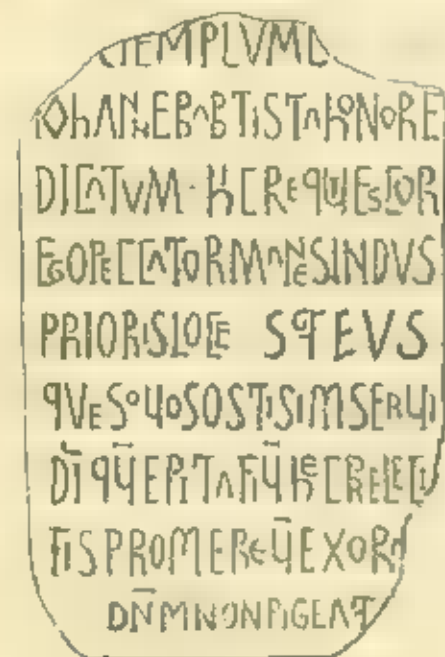 TEMPLVM D
IOhANNE BABTISTA hONORE
DICATVM · hC REqUIESCOR
EGO PECCATOR MANESINDVS
PRIORIS LOCE
qVESO UOS OSTISIMSERUI
DI qU EPITAFIU hEC RELEGI
TIS PROMERE U EXORA
DNM NON PIGEAT